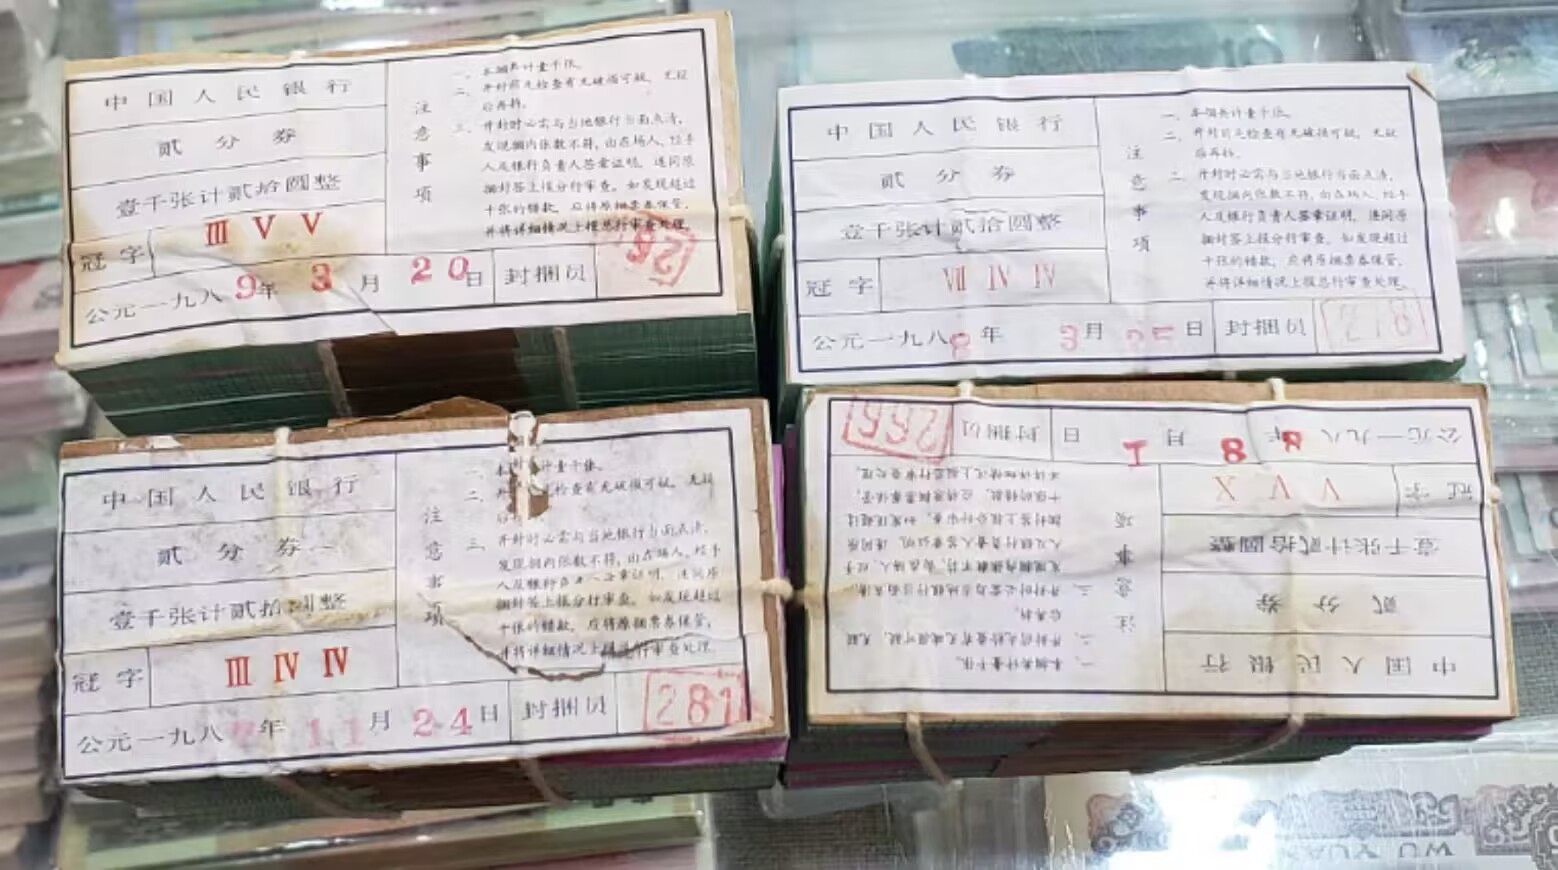 中国人民银行
贰分券
壹千张计贰拾圆整
冠字 Ⅲ Ⅴ Ⅴ
公元一九八9年 3月 20日 封捆员
注意事项
一、本捆共计壹千张。
二、开封前先检查有无破损可疑，无疑
后再拆。
三、开封时必需与当地银行当面点清，
发现捆内张数不符，由在场人、经手
人及银行负责人签章证明，连同原
捆封签上报分行审查。如发现超过
十张的错款，应将原捆票券保管，
并将详细情况上报总行审查处理。
中国人民银行
贰分券
壹千张计贰拾圆整
冠字 Ⅶ Ⅳ Ⅳ
公元一九八8年 3月 25日 封捆员
278
注意事项
一、本捆共计壹千张。
二、开封前先检查有无破损可疑，无疑
后再拆。
三、开封时必需与当地银行当面点清，
发现捆内张数不符，由在场人、经手
人及银行负责人签章证明，连同原
捆封签上报分行审查。如发现超过
十张的错款，应将原捆票券保管，
并将详细情况上报总行审查处理。
中国人民银行
贰分券
壹千张计贰拾圆整
冠字 Ⅲ Ⅳ Ⅳ
公元一九八 年 11月 24日 封捆员
281
注意事项
一、本 计壹千张。
二、开 检查有无破损可疑，无疑
三、开封时必需与当地银行当面点清，
发现捆内张数不符，由在场人、经手
人及银行负 签章证明，连同原
捆封签上报分行审查。如发现超过
十张的错款，应将原捆票券保管，
并将详细情况上报总行审查处理。
中国人民银行
贰分券
壹千张计贰拾圆整
冠字 Ⅴ Ⅴ Ⅹ
公元一九八8年 8月 1日 封捆员
注意事项
一、本捆共计壹千张。
二、开封前先检查有无破损可疑，无疑
后再拆。
三、开封时必需与当地银行当面点清，
发现捆内张数不符，由在场人、经手
人及银行负责人签章证明，连同原
捆封签上报分行审查。如发现超过
十张的错款，应将原捆票券保管，
并将详细情况上报总行审查处理。
WU YUAN